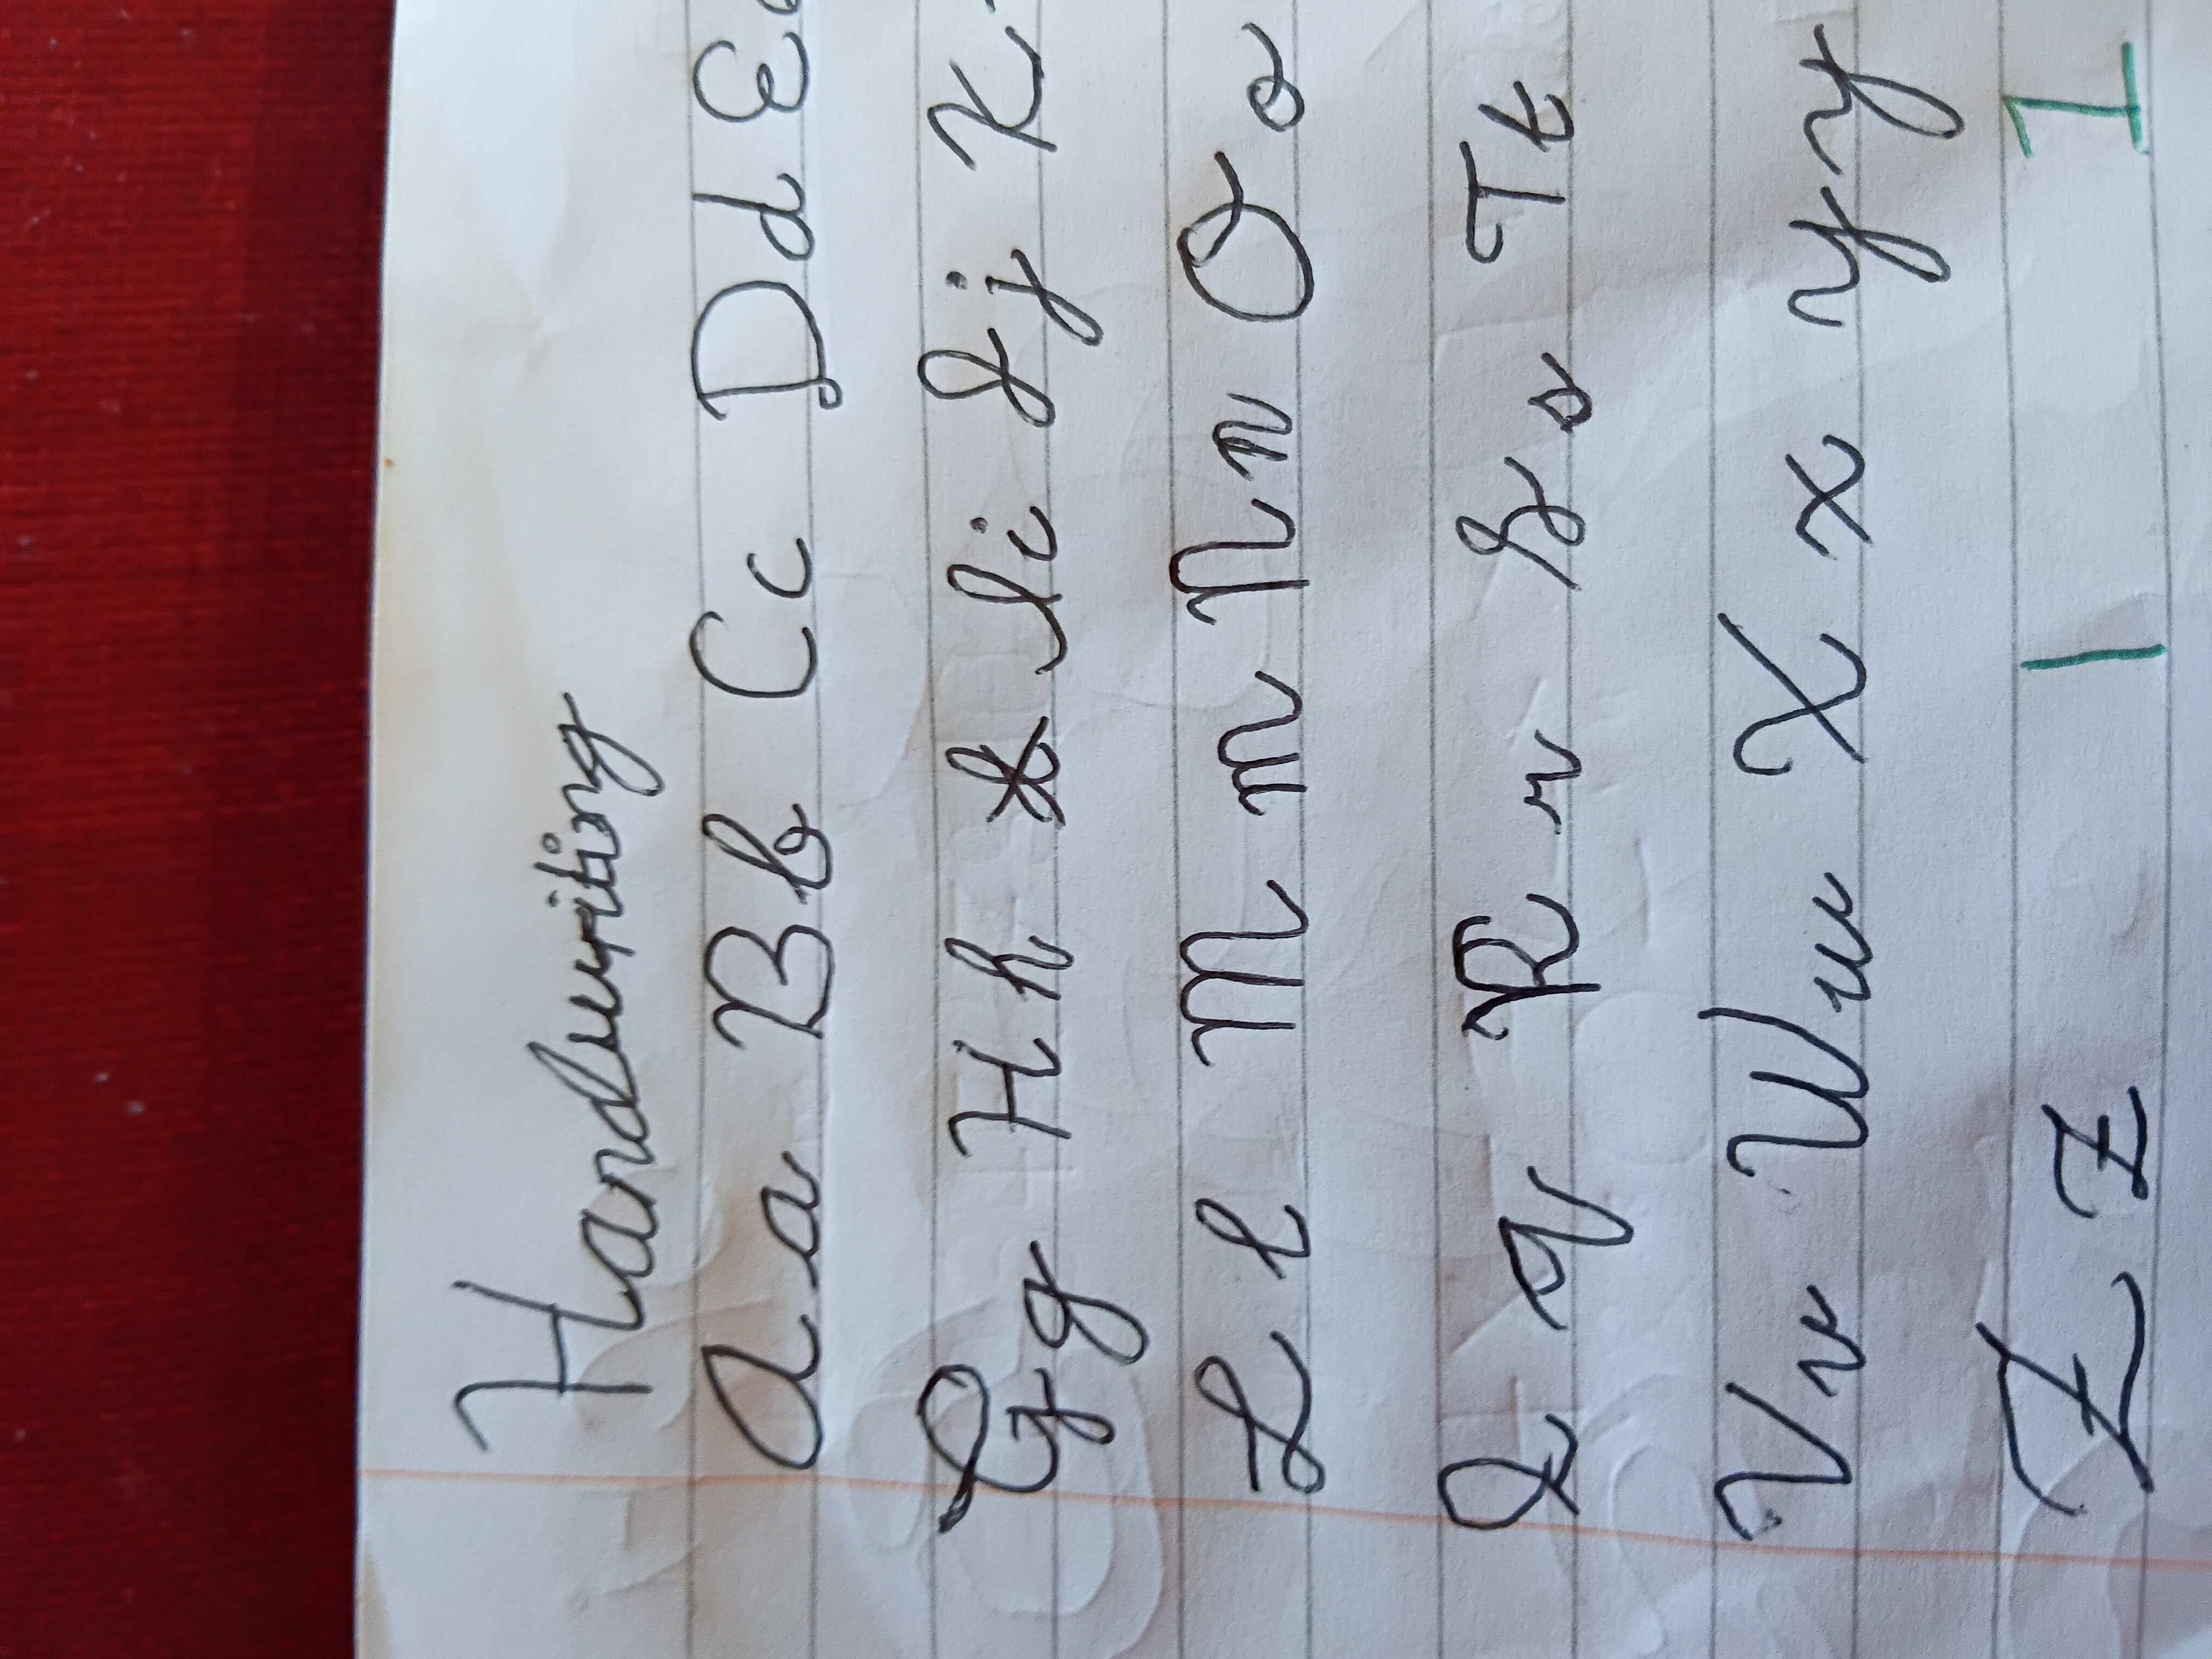 Handwriting
Aa Bb Cc Dd Ee
Gg Hh Ii Jj K
L l M m N n O o
Q q R r S s T t
V v W w X x Y y
Z z 1 1